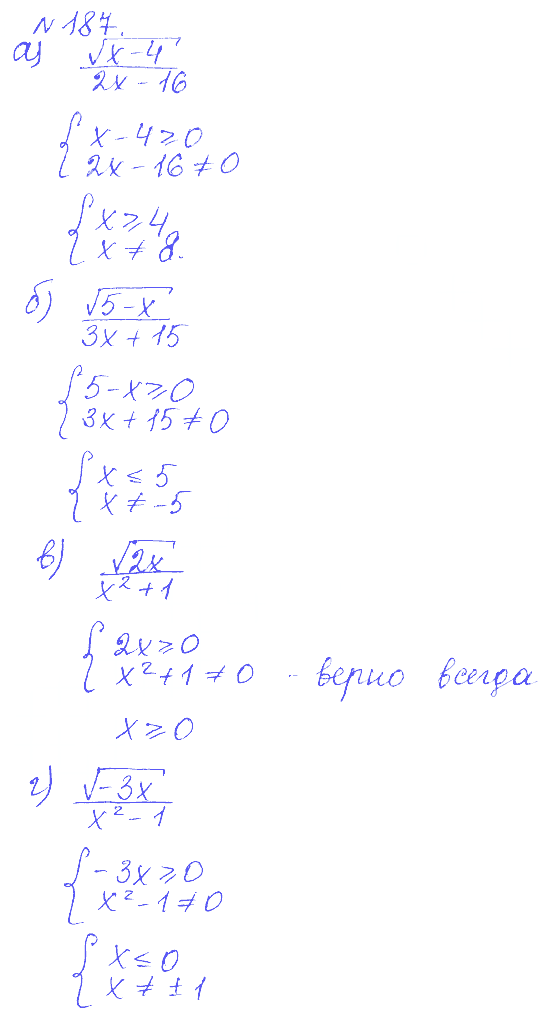 N 187.
а) √(x-4)
2x-16
{ x-4≥0
2x-16≠0
{ x≥4
x≠8.
б) √(5-x)
3x+15
{ 5-x≥0
3x+15≠0
{ x≤5
x≠-5
в) √(2x)
x²+1
{ 2x≥0
x²+1≠0 - верно всегда
x≥0
г) √(-3x)
x²-1
{ -3x≥0
x²-1≠0
{ x≤0
x≠±1